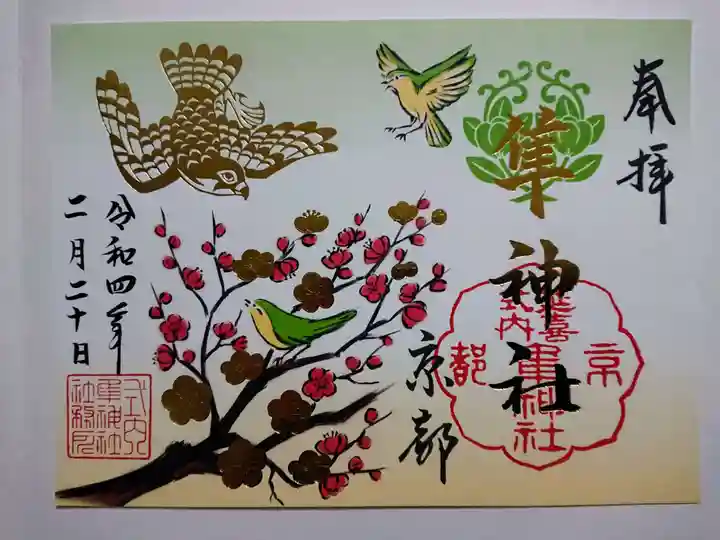 奉拝
隼神社
延喜
式内
隼神社
京都
京都
令和四年
二月二十日
式内
隼神社
社務所印